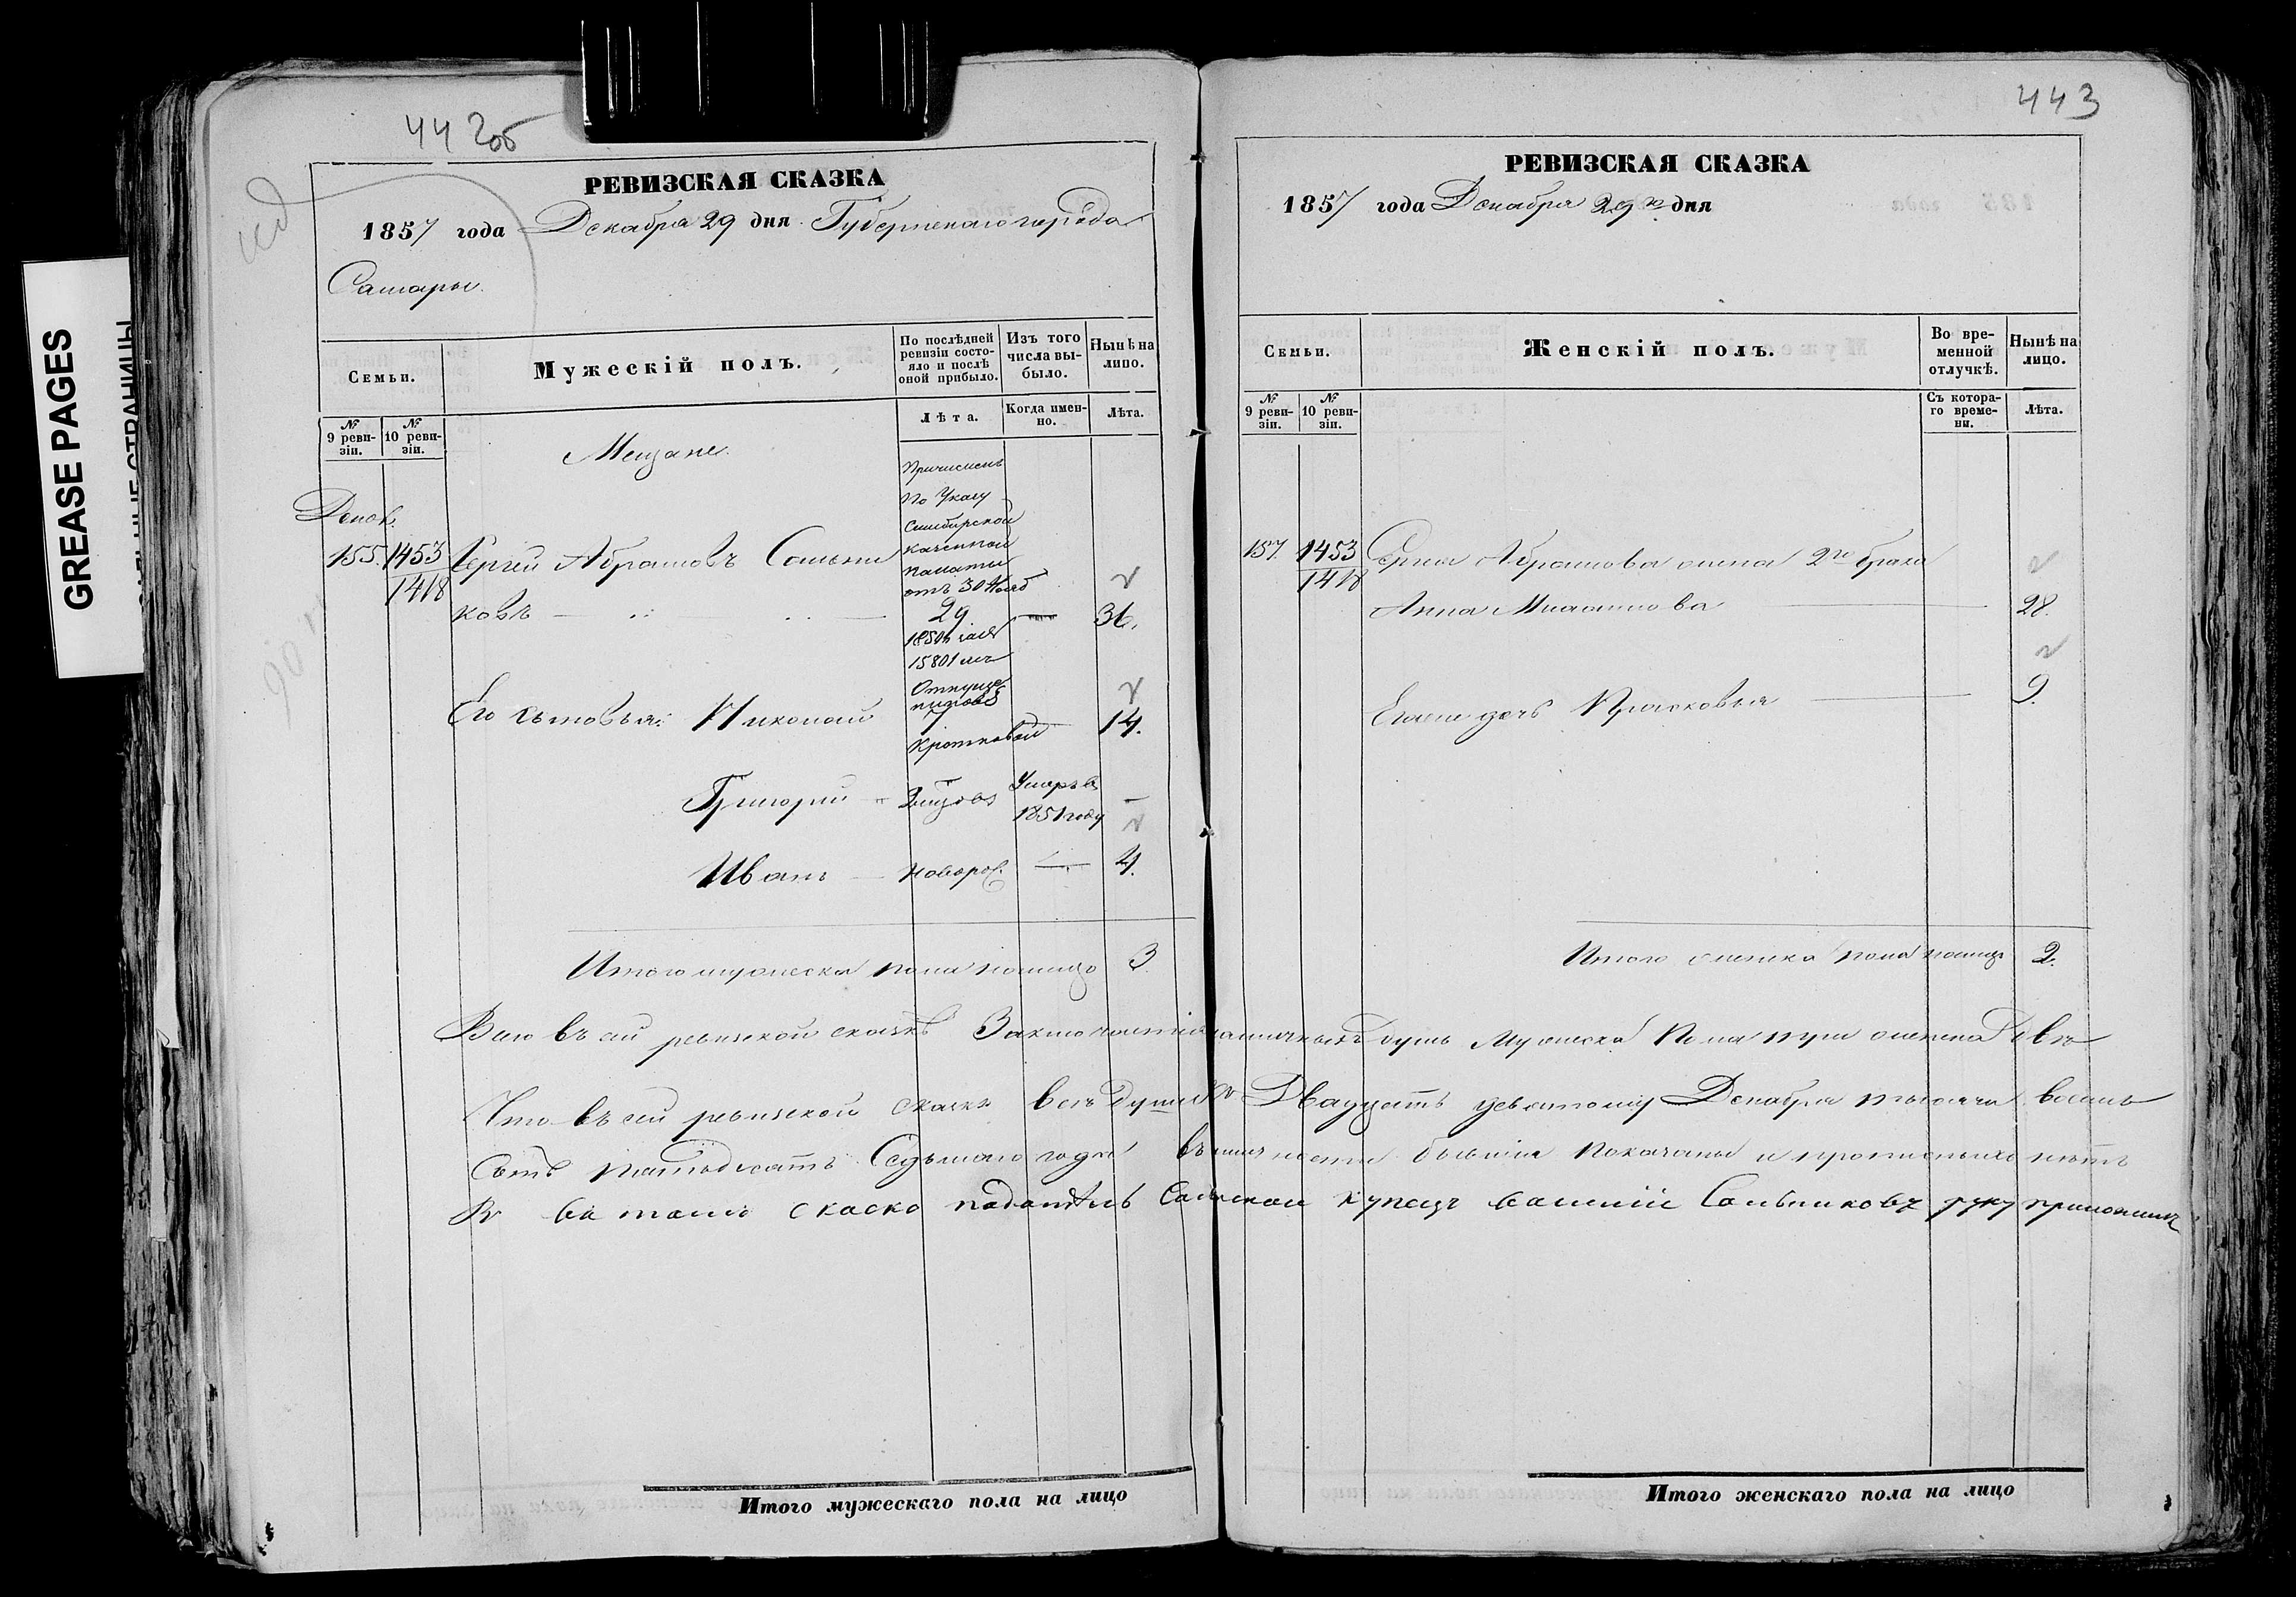 442об
РЕВИЗСКАЯ СКАЗКА
1857 года Декабря 29 дня Губернскаго города
Самары.
Семьи.
Мужескій полъ.
По послѣдней ревизіи состояло и послѣ оной прибыло.
Изъ того числа выбыло.
Нынѣ на лицо.
№ 9 ревизіи.
№ 10 ревизіи.
Лѣта.
Когда именно.
Лѣта.
Мещане.
Причисленъ
по Указу
Симбирской
Казенной
Палаты
отъ 30 Нояб
1850 г за №
15801 мъ
Отпуще
Кротковой
Допол.
155. 1453
1418
Сергей Абрамовъ Сальни
ковъ 29 36.
Его сыновья: Николай 7 14.
Григорий Умеръ въ
1851 году
Иванъ Новорож. 4.
Итого мужеска пола налицо 3.
443
РЕВИЗСКАЯ СКАЗКА
1857 года Декабря 29го дня
Семьи.
Женскій полъ.
Во временной отлучкѣ.
Нынѣ на лицо.
№ 9 ревизіи.
№ 10 ревизіи.
Съ котораго времени.
Лѣта.
157. 1453
1418
Сергея Абрамова жена 2го брака
Анна 28.
дочь Прасковья 9.
Итого женска пола налицо 2.
Всего въ сей ревизской сказкѣ Заключается наличныхъ душъ Мужеска Пола три женска Двѣ
Что въ сей ревизской сказкѣ всѣ Души къ Двадцать девятому Декабря тысяча восемь
Сотъ пятьдесятъ Седьмаго года въ наличности бывшія Показаны и прописныхъ нѣтъ
К податель купецъ Сальниковъ руку приложилъ
Итого мужескаго пола на лицо
Итого женскаго пола на лицо
GREASE PAGES